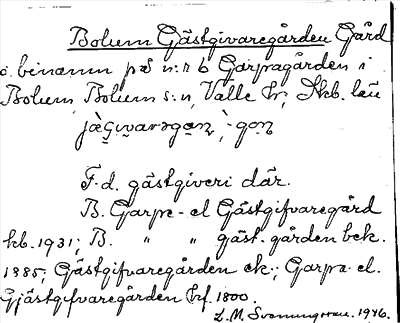 Bolum Gästgivaregården Gård
o. binamn på n:r 6 Garpagården i
Bolum Bolum s:n, Valle hr, Skb. län
F. d. gästgiveri där.
B. Garpe- el Gästgifvaregård
kb. 1931; B. " " gäst. gården bek.
1885; Gästgifvaregården ek.; Garpa- el.
Gjästgifvaregården hf. 1800.
1946.